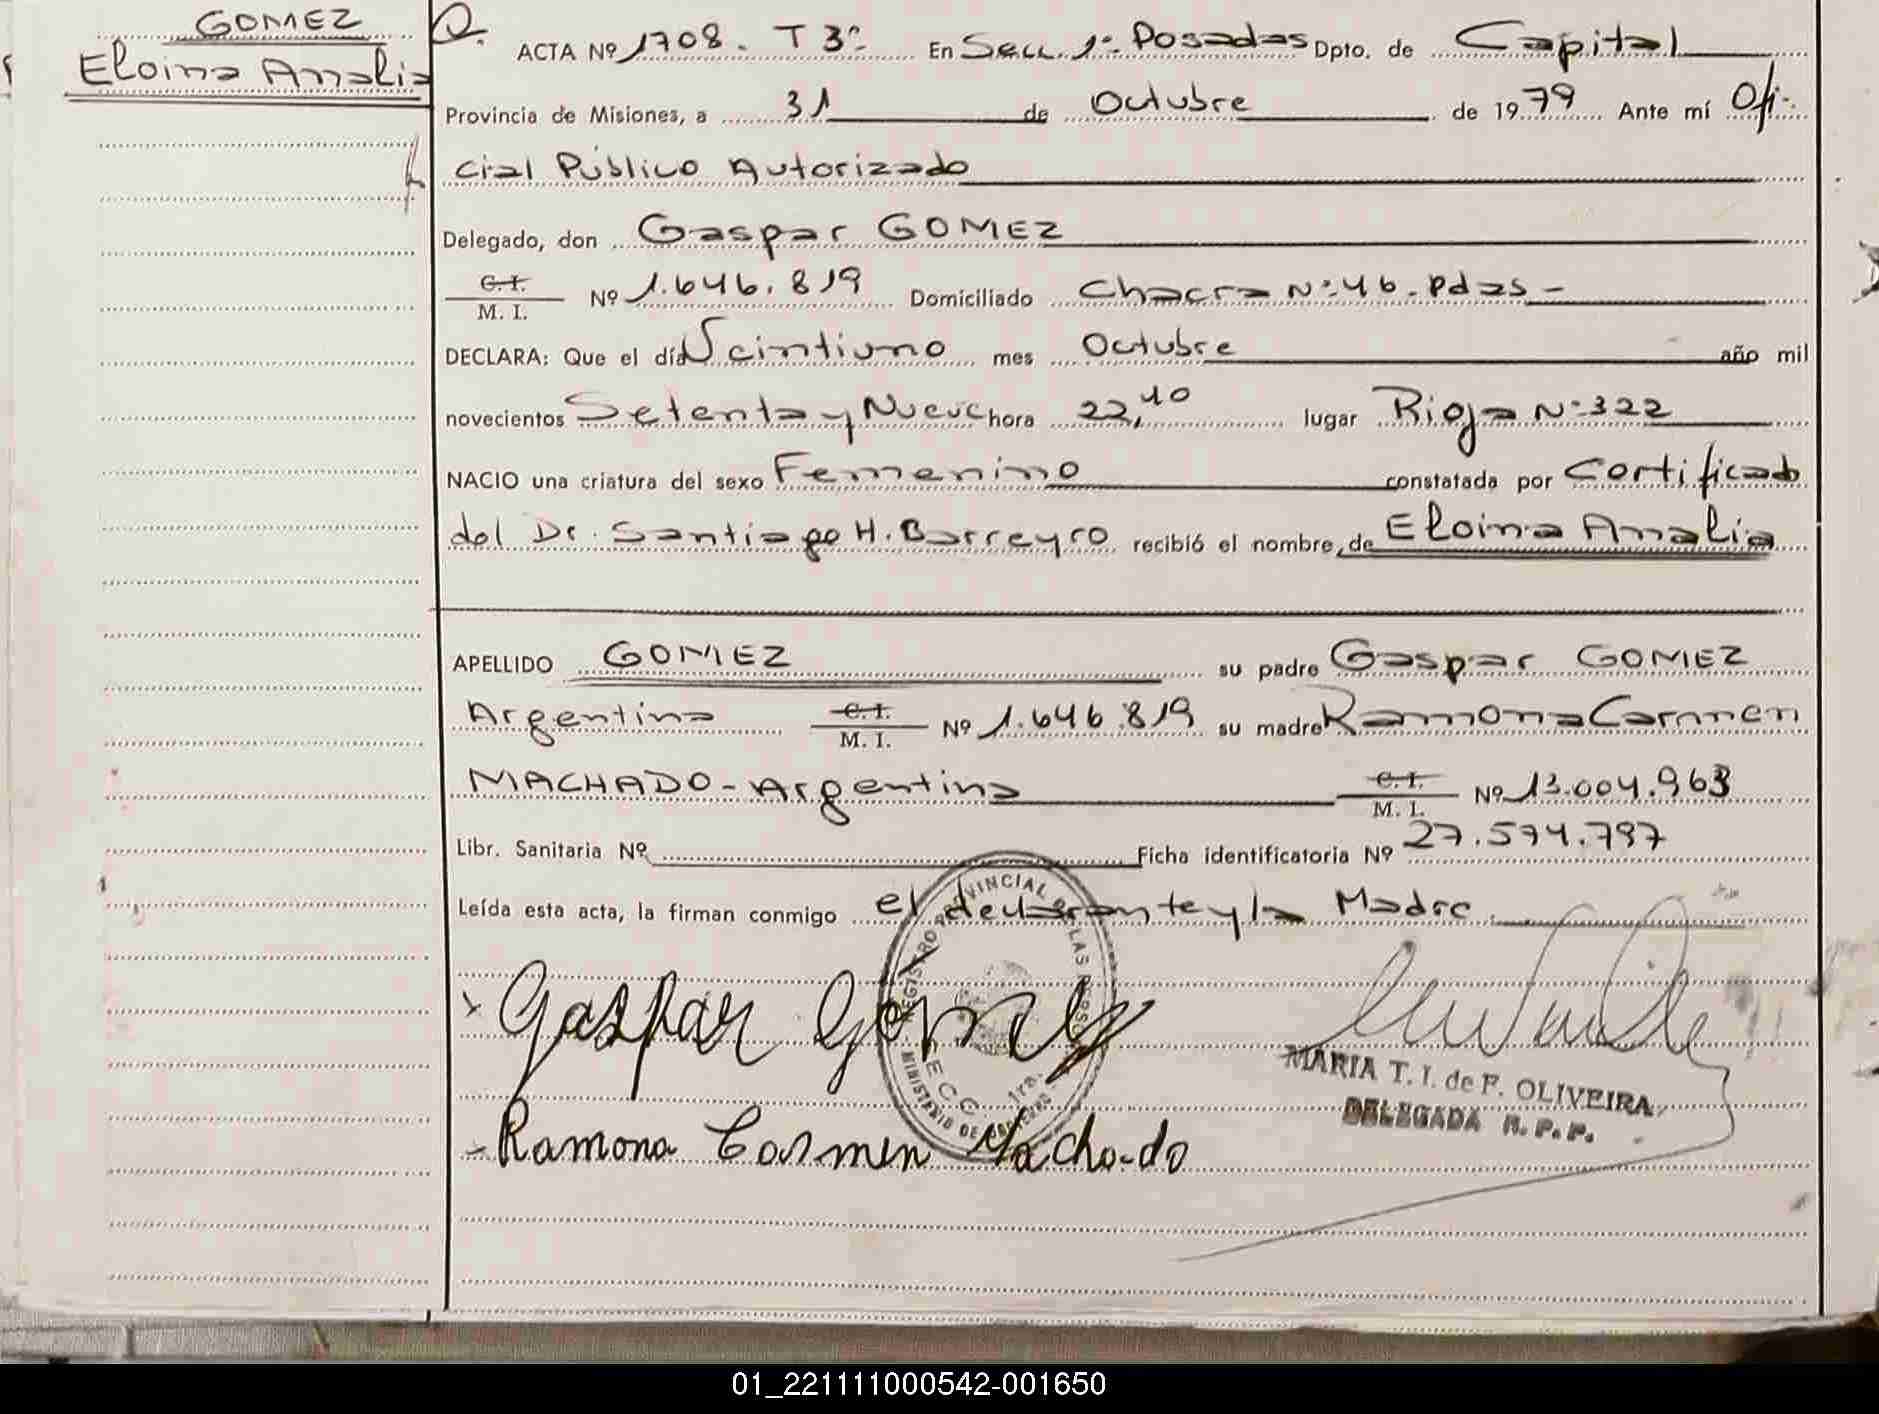 GOMEZ
Eloina Analia
ACTA Nº 1708. T 3º En Secc. 1º Posadas Dpto. de Capital
Provincia de Misiones, a 31 de Octubre de 1979 Ante mí Ofi-
cial Público Autorizado
Delegado, don Gaspar GOMEZ
C. I.
M. I. Nº 1.646.819 Domiciliado Chacra Nº 46 - Pdas -
DECLARA: Que el día Veintiuno mes Octubre año mil
novecientos Setenta y Nueve hora 22,40 lugar Rioja Nº 322
NACIO una criatura del sexo Femenino constatada por Certificado
del Dr. Santiago H. Barreyro recibió el nombre de Eloina Analia
APELLIDO GOMEZ su padre Gaspar GOMEZ
Argentina C. I. M. I. Nº 1.646.819 su madre Ramona Carmen
MACHADO - Argentina C. I. M. I. Nº 13.004.963
Libr. Sanitaria Nº Ficha identificatoria Nº 27.574.797
Leída esta acta, la firman conmigo el declarante y la Madre
Gaspar Gomez
REGISTRO PROVINCIAL DE LAS PERSONAS
MINISTERIO DE GOBIERNO
SECC. 1ra.
MARIA T. I. de F. OLIVEIRA
DELEGADA R. P. P.
Ramona Carmen Machado
01_221111000542-001650